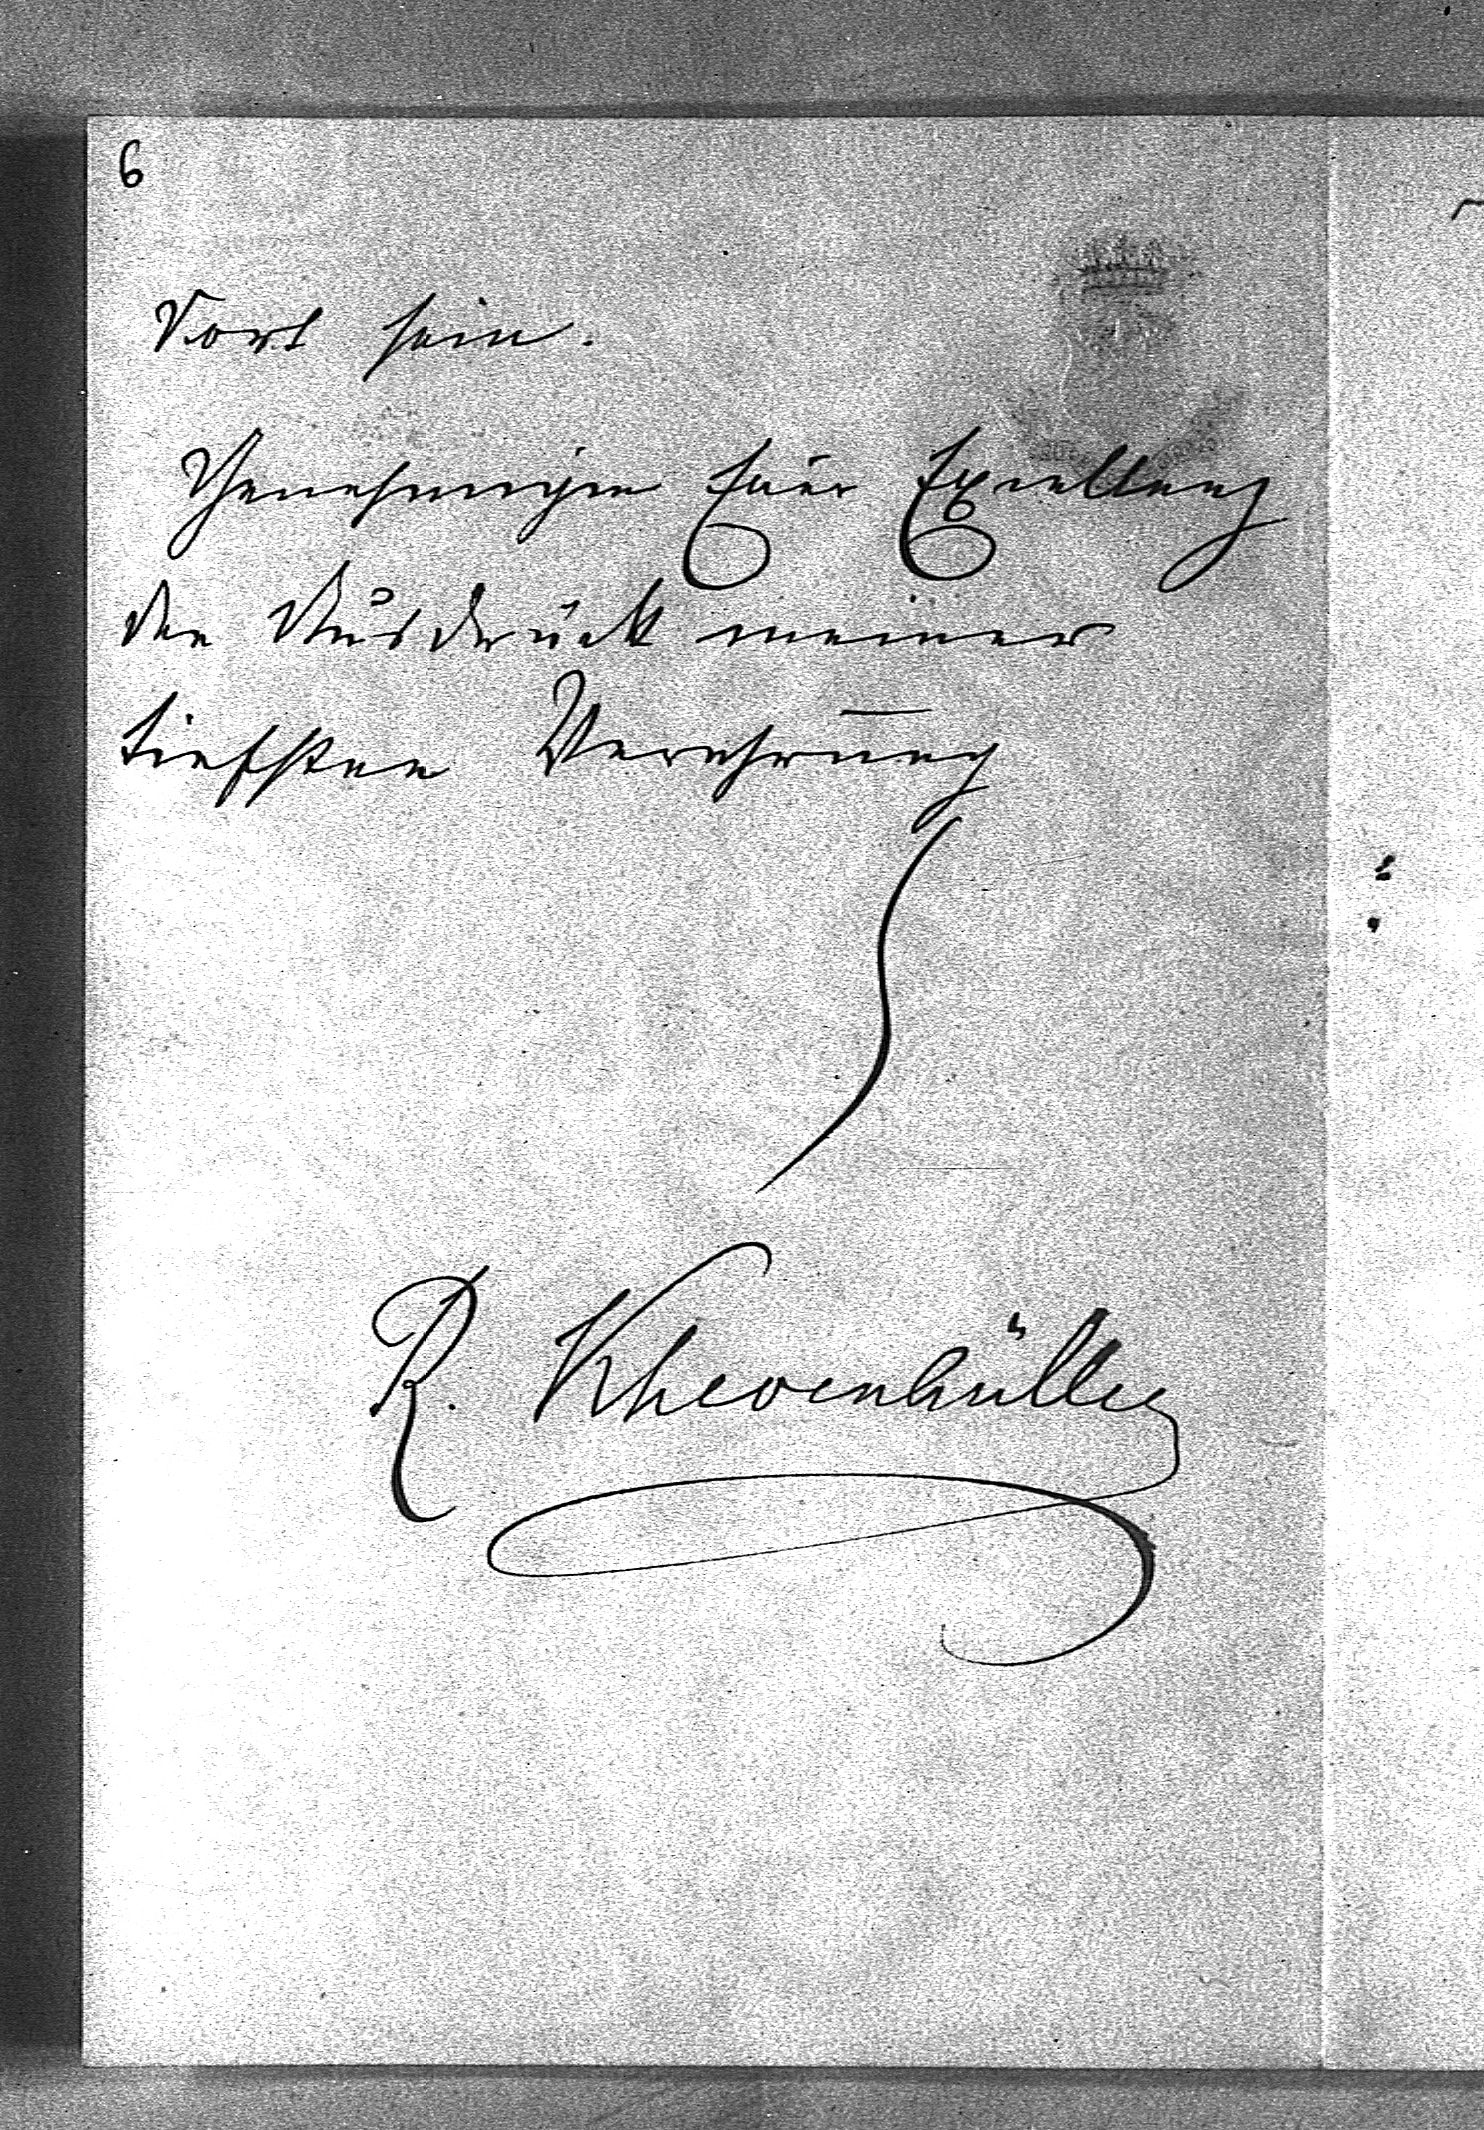 6
dort sein.
Genehmigen Euer Exzellenz
den Ausdruck meiner
tiefsten Verehrung
R. Khevenhüller